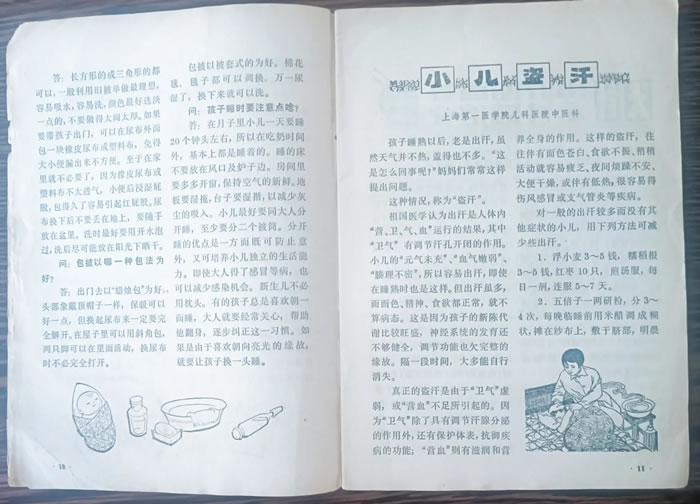 答：长方形的或三角形的都
可以，一般利用旧被单做最理想，
容易吸水，容易洗，颜色最好选淡
一点的，不要做得大阔大厚。如果
要带孩子出门，可以在尿布外面
包一块橡皮尿布或塑料布，免得
大小便漏出来不方便。至于在家
里就不必要了，因为橡皮尿布或
塑料布不大透气，小便后浸湿屁
股，包得久了容易引起红屁股。尿
布换下后不要丢在地上，要随手
放在盆里。洗时最好要用开水泡
过，洗后尽可能放在阳光下晒干。
问：包被以哪一种包法为
好？
答：出门去以“蜡烛包”为好，
头部象戴顶帽子一样，保暖可以
好一点，但换起尿布来一定要完
全解开。在屋子里可以用斜角包，
两只脚可以在里面活动，换尿布
时不必完全打开。
包被以被套式的为好。棉花
毯、毯子都可以调换。万一尿
湿了，换下来就可以洗。
问：孩子睡时要注意点啥？
答：在月子里小儿一天要睡
20个钟头左右，所以在吃奶时间
外，基本上都是睡着的。睡的床
不要放在风口及炉子边。房间里
要多多开窗，保持空气的新鲜。地
板要湿拖，台子要湿揩，以减少灰
尘的吸入。小儿最好要同大人分
开睡，至少要分二个被筒。分开
睡的优点是一方面既可防止意
外，又可培养小儿独立的生活能
力。即使大人得了感冒等病，也
可以减少感染机会。新生儿不必
用枕头。有的孩子总是喜欢朝一
面睡，大人就要经常关心，帮助
他翻身，逐步纠正这一习惯。如
果是由于喜欢朝向亮光的缘故，
就要让孩子换一头睡。
· 10 ·
小儿盗汗
上海第一医学院儿科医院中医科
孩子睡熟以后，老是出汗，虽
然天气并不热，盖得也不多。“这
是怎么回事呢？”妈妈们常常这样
提出问题。
这种情况，称为“盗汗”。
祖国医学认为出汗是人体内
“营、卫、气、血”运行的结果，其中
“卫气”有调节汗孔开闭的作用。
小儿的“元气未充”、“血气嫩弱”、
“腠理不密”，所以容易出汗，即使
在睡熟时也是这样。但出汗虽多，
而面色、精神、食欲都正常，就不
算病态。这是因为孩子的新陈代
谢比较旺盛，神经系统的发育还
不够健全，调节功能也欠完整的
缘故。隔一段时间，大多能自行
消失。
真正的盗汗是由于“卫气”虚
弱，或“营血”不足所引起的。因
为“卫气”除了具有调节汗腺分泌
的作用外，还有保护体表，抗御疾
病的功能；“营血”则有滋润和营
养全身的作用。这样的盗汗，往
往伴有面色苍白、食欲不振、稍稍
活动就容易疲乏、夜间烦躁不安、
大便干燥，或伴有低热，很容易得
伤风感冒或支气管炎等疾病。
对一般的出汗较多而没有其
他症状的小儿，用下列方法可减
少些出汗。
1．浮小麦3～5钱，糯稻根
3～5钱，红枣10只，煎汤服，每
日一剂，连服5～7天。
2．五倍子一两研粉，分3～
4次，每晚临睡前用米醋调成糊
状，摊在纱布上，敷于脐部，明晨
· 11 ·